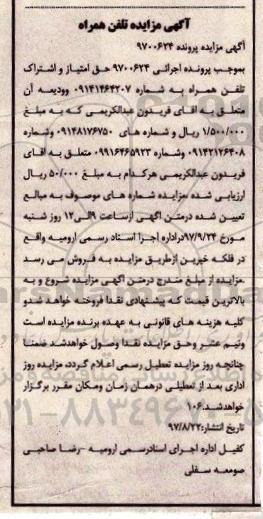 آگهی مزایده تلفن همراه
آگهی مزایده پرونده ۹۷۰۰۶۲۴
بموجب پرونده اجرائی ۹۷۰۰۶۲۴ حق امتیاز و اشتراک
تلفن همراه به شماره ۰۹۱۴۱۴۶۴۲۰۷ وودیعه آن
متعلق به اقای فریدون عبدالکریمی که به مبلغ
۱/۵۰۰/۰۰۰ ریال و شماره های ۰۹۱۴۸۱۷۶۷۵۰ وشماره
۰۹۱۴۲۱۲۶۴۰۸ وشماره ۰۹۹۱۶۴۶۵۹۲۳ متعلق به اقای
فریدون عبدالکریمی هرکدام به مبلغ ۵۰/۰۰۰ ریال
ارزیابی شده مزایده شماره های موصوف به مبالغ
تعیین شده درمتن اگهی ازساعت ۹الی۱۲ روز شنبه
مورخ ۹۷/۹/۲۴دراداره اجرا اسناد رسمی ارومیه واقع
در فلکه خیرین ازطریق مزایده به فروش می رسد
.مزایده از مبلغ مندرج درمتن اگهی مزایده شروع و به
بالاترین قیمت که پیشنهادی نقدا فروخته خواهد شدو
کلیه هزینه های قانونی به عهده برنده مزایده است
ونیم عشر وحق مزایده نقدا وصول خواهدشد ضمنا
چنانچه روز مزایده تعطیل رسمی اعلام گردد، مزایده روز
اداری بعد از تعطیلی درهمان زمان ومکان مقرر برگزار
خواهدشد.۱۰۶
تاریخ انتشار:۹۷/۸/۲۲
کفیل اداره اجرای اسنادرسمی ارومیه -رضا صاحبی
صومعه سفلی